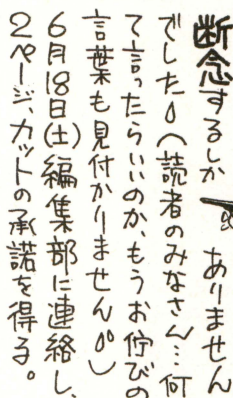 断念するしか ありません
でした。(読者のみなさん…何
て言ったらいいのか、もうお侘びの
言葉も見付かりません。)
6月18日(土)編集部に連絡し、
2ページ、カットの承諾を得る。